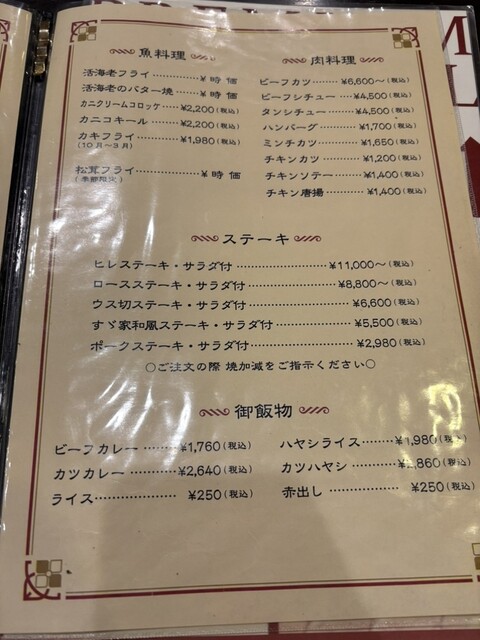 魚料理
活海老フライ…………¥時価
活海老のバター焼………¥時価
カニクリームコロッケ…¥2,200(税込)
カニコキール…………¥2,200(税込)
カキフライ……………¥1,980(税込)
(10月~3月)
松茸フライ……………¥時価
(季節限定)
肉料理
ビーフカツ………¥6,600~(税込)
ビーフシチュー…¥4,500(税込)
タンシチュー……¥4,500(税込)
ハンバーグ………¥1,700(税込)
ミンチカツ………¥1,650(税込)
チキンカツ………¥1,200(税込)
チキンソテー……¥1,400(税込)
チキン唐揚………¥1,400(税込)
ステーキ
ヒレステーキ・サラダ付……………¥11,000~(税込)
ロースステーキ・サラダ付…………¥8,800~(税込)
ウス切ステーキ・サラダ付…………¥6,600(税込)
すゞ家和風ステーキ・サラダ付……¥5,500(税込)
ポークステーキ・サラダ付…………¥2,980(税込)
○ご注文の際 焼加減をご指示ください○
御飯物
ビーフカレー………¥1,760(税込)
カツカレー…………¥2,640(税込)
ライス………………¥250(税込)
ハヤシライス………¥1,980(税込)
カツハヤシ…………¥2,860(税込)
赤出し………………¥250(税込)